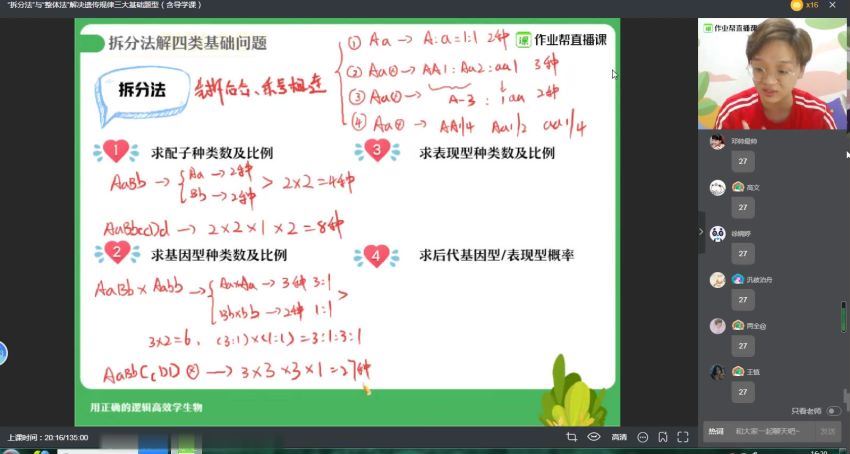 “拆分法”与“整体法”解决遗传规律三大基础题型（含导学课）
×16
拆分法解四类基础问题
① Aa → A:a=1:1 2种
课 作业帮直播课
拆分法
先拆后合、乘号相连
② Aa⊗→ AA1:Aa2:aa1 3种
③ Aa⊗→ A-3 : 1aa 2种
④ Aa⊗ → AA1/4 Aa1/2 aa1/4
1 求配子种类数及比例
AaBb → { Aa → 2种
Bb → 2种 > 2×2=4种
AaBbCCDd → 2×2×1×2=8种
3 求表现型种类数及比例
2 求基因型种类数及比例
AaBb×Aabb → { Aa×Aa → 3种 3:1
Bb×bb → 2种 1:1 >
3×2=6, (3:1)×(1:1)=3:1:3:1
AaBbCcDD ⊗ → 3×3×3×1=27种
4 求后代基因型/表现型概率
用正确的逻辑高效学生物
作业帮直播课
邓帅是帅
27
高文
27
徐婉婷
27
27
两全@
27
王慎
27
只看老师
上课时间：20:16/135:00
高清
热词
和大家一起聊天吧~
发送
16:20